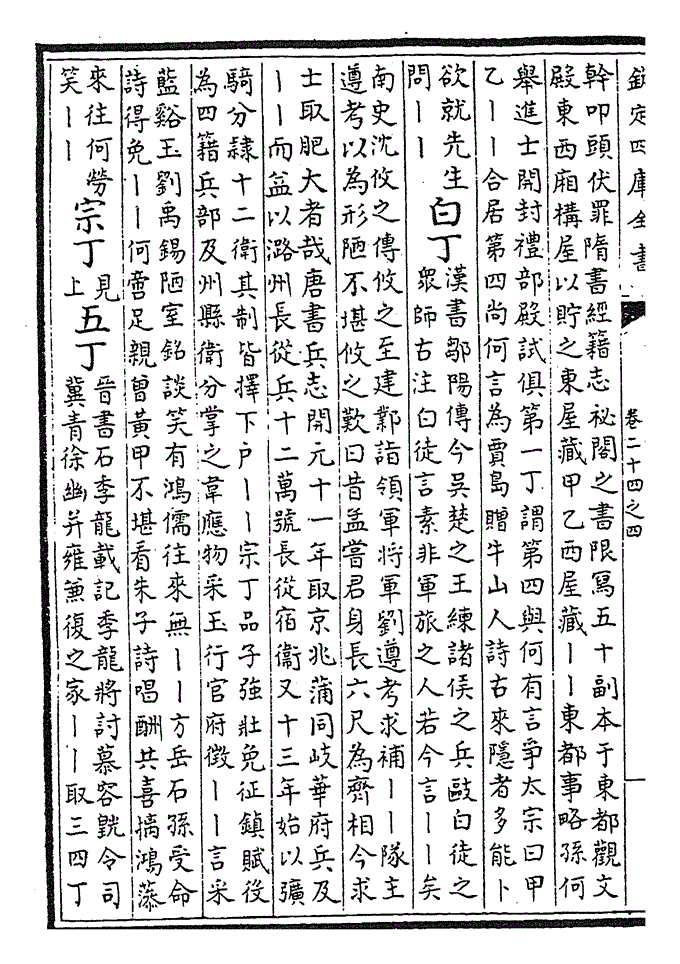 欽定四庫全書
卷二十四之四
幹叩頭伏罪隋書經籍志祕閣之書限寫五十副本于東都觀文
殿東西廂構屋以貯之東屋藏甲乙西屋藏丨丨東都事略孫何
舉進士開封禮部殿試俱第一丁謂第四與何有言爭太宗曰甲
乙丨丨合居第四尚何言為賈島贈牛山人詩古來隱者多能卜
欲就先生
問丨丨
白丁
漢書鄒陽傳今吳楚之王練諸侯之兵敺白徒之
衆師古注白徒言素非軍旅之人若今言丨丨矣
南史沈攸之傳攸之至建鄴詣領軍將軍劉遵考求補丨丨隊主
遵考以為形陋不堪攸之歎曰昔孟嘗君身長六尺為齊相今求
士取肥大者哉唐書兵志開元十一年取京兆蒲同岐華府兵及
丨丨而益以潞州長從兵十二萬號長從宿衛又十三年始以彍
騎分隸十二衛其制皆擇下戶丨丨宗丁品子強壯免征鎮賦役
為四籍兵部及州縣衛分掌之韋應物采玉行官府徵丨丨言采
藍谿玉劉禹錫陋室銘談笑有鴻儒往來無丨丨方岳石孫受命
詩得免丨丨何啻足親曾黃甲不堪看朱子詩唱酬共喜摛鴻藻
來往何勞
笑丨丨
宗丁
見
上
五丁
晉書石季龍載記季龍將討慕容皝令司
冀青徐幽并雍兼復之家丨丨取三四丁